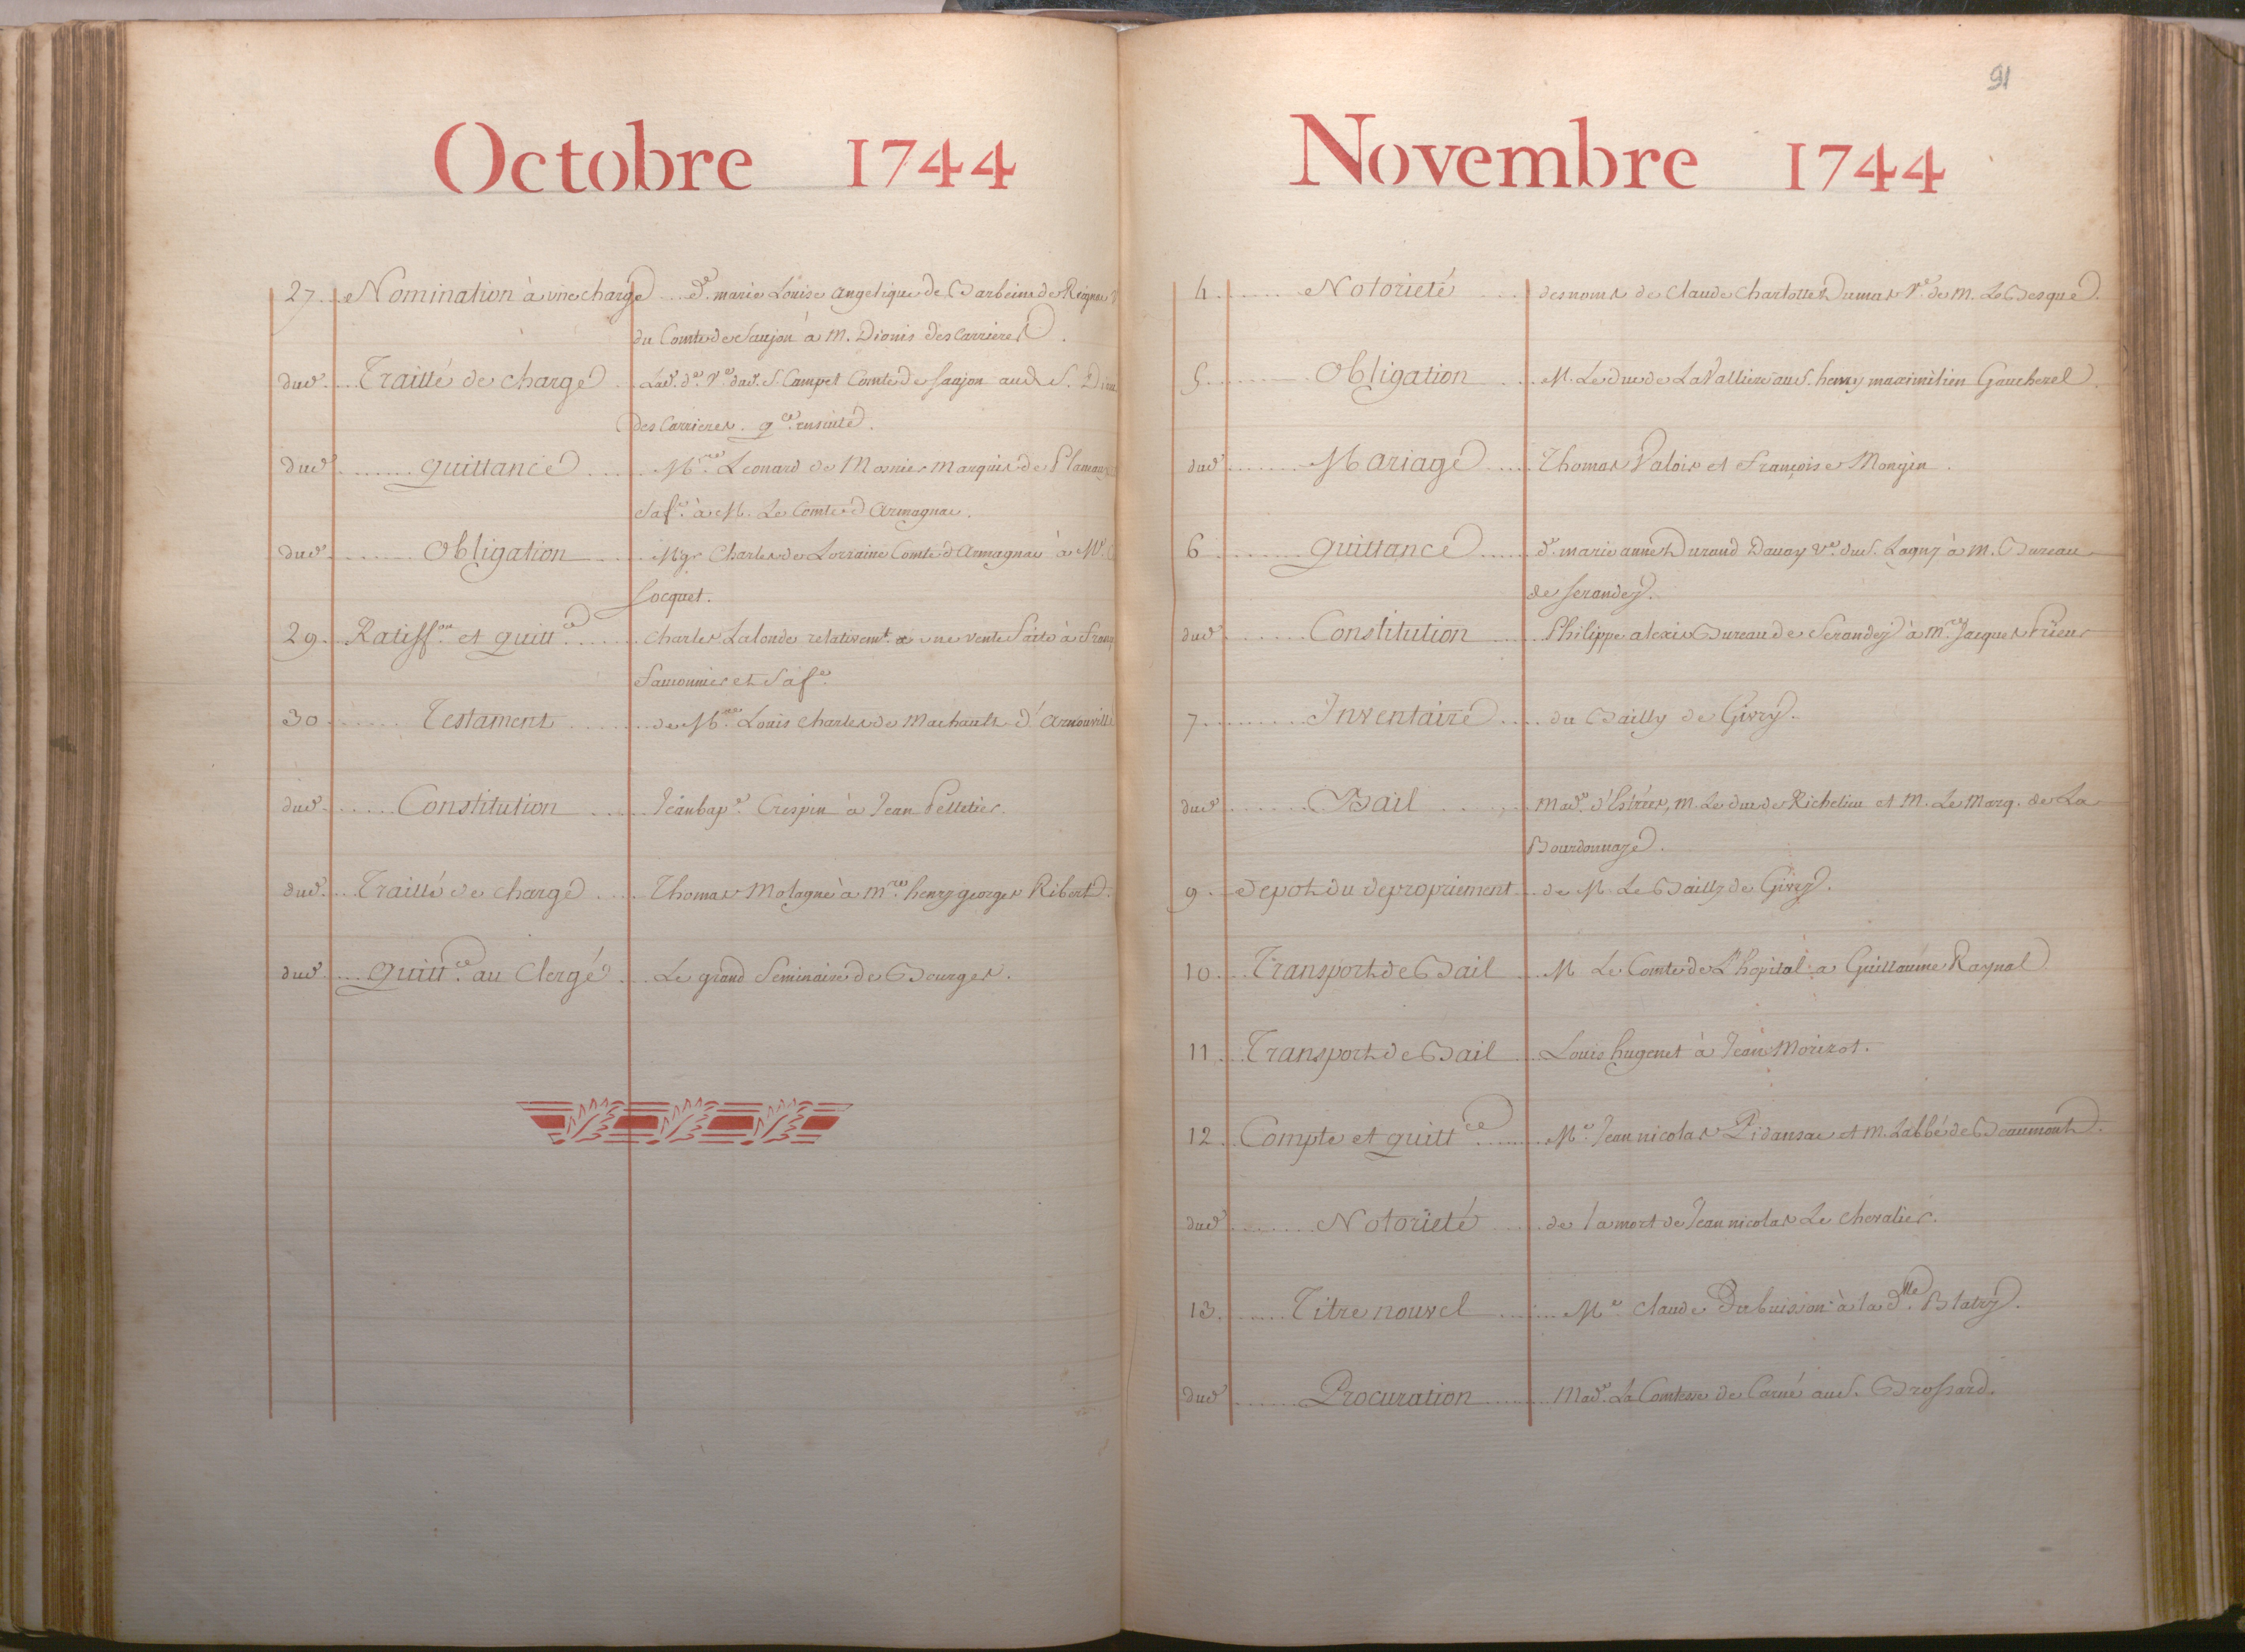 Octobre 1744
27 Nomination à une charge De. marie Louise angelique de Barbeim de Reignac
du Comte de Saujon à M. Dionis des Carrieres.
dud. Traitté de charge Lad. de. Ve. dud. S. Campet Comte de Saujon aud. S.
des Carrieres. qce. ensuite.
dud. quittance Mre. Leonard de Mosnier Marquis de
Sa fe. à M. Le Comte d'armagnac.
dud. Obligation Mgr Charles de Lorraine Comte d'armagnac à Me.
Socquet.
29. Ratiffon. et quittce. Charles Lalonde relativemt. à une vente faite à
Saunier et Sa fe.
30 Testament de Mre. Louis charles de Machault d'arnouville
dud. Constitution Jean bape. Crespin à Jean Pelletier.
dud. Traitté de charge Thomas Molagne à mre. henry georges Ribert.
dud. Quittce. au Clergé Le grand Seminaire de Bourges.
91
Novembre 1744
4 Notorieté des noms de Claude Charlotte Dumas Ve. de M. Le Besgue.
5 Obligation M. Le duc de La Valliere au S. henry maximilien Gaucherel.
dud. Mariage Thomas Valois et françoise Mongin.
6 quittance de. marie anne Durand Dauoy Ve. du S. Lagny à M. Bureau
de Serandey.
dud. Constitution Philippe alexis Bureau de Serandey à mre. Jacques Prieur
7 Inventaire du Bailly de Givry.
dud. Bail Made. d'Estrées, M. Le duc de Richelieu et M. Le Marq. de La
Bourdonnaye.
9. Depot du depropriement de M. Le Bailly de Givry.
10. Transport de Bail M Le Comte de L'hopital à Guillaume Raynal
11. Transport de Bail Louis hugenet à Jean Morizot.
12. Compte et quittce. Me. Jean nicolas Pidansac et M. L'abbé de Beaumont.
dud. Notorieté de la mort de Jean nicolas Le chevalier.
13. Titre nouvel Me. Claude Dubuisson à la dlle. Blatry.
dud. Procuration Made. La Comtesse de Carné au S. Brossard.